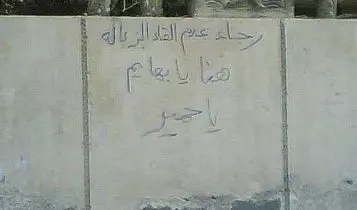 رجاء عدم القاء الزباله
هنا يا بهايم
يا حمير